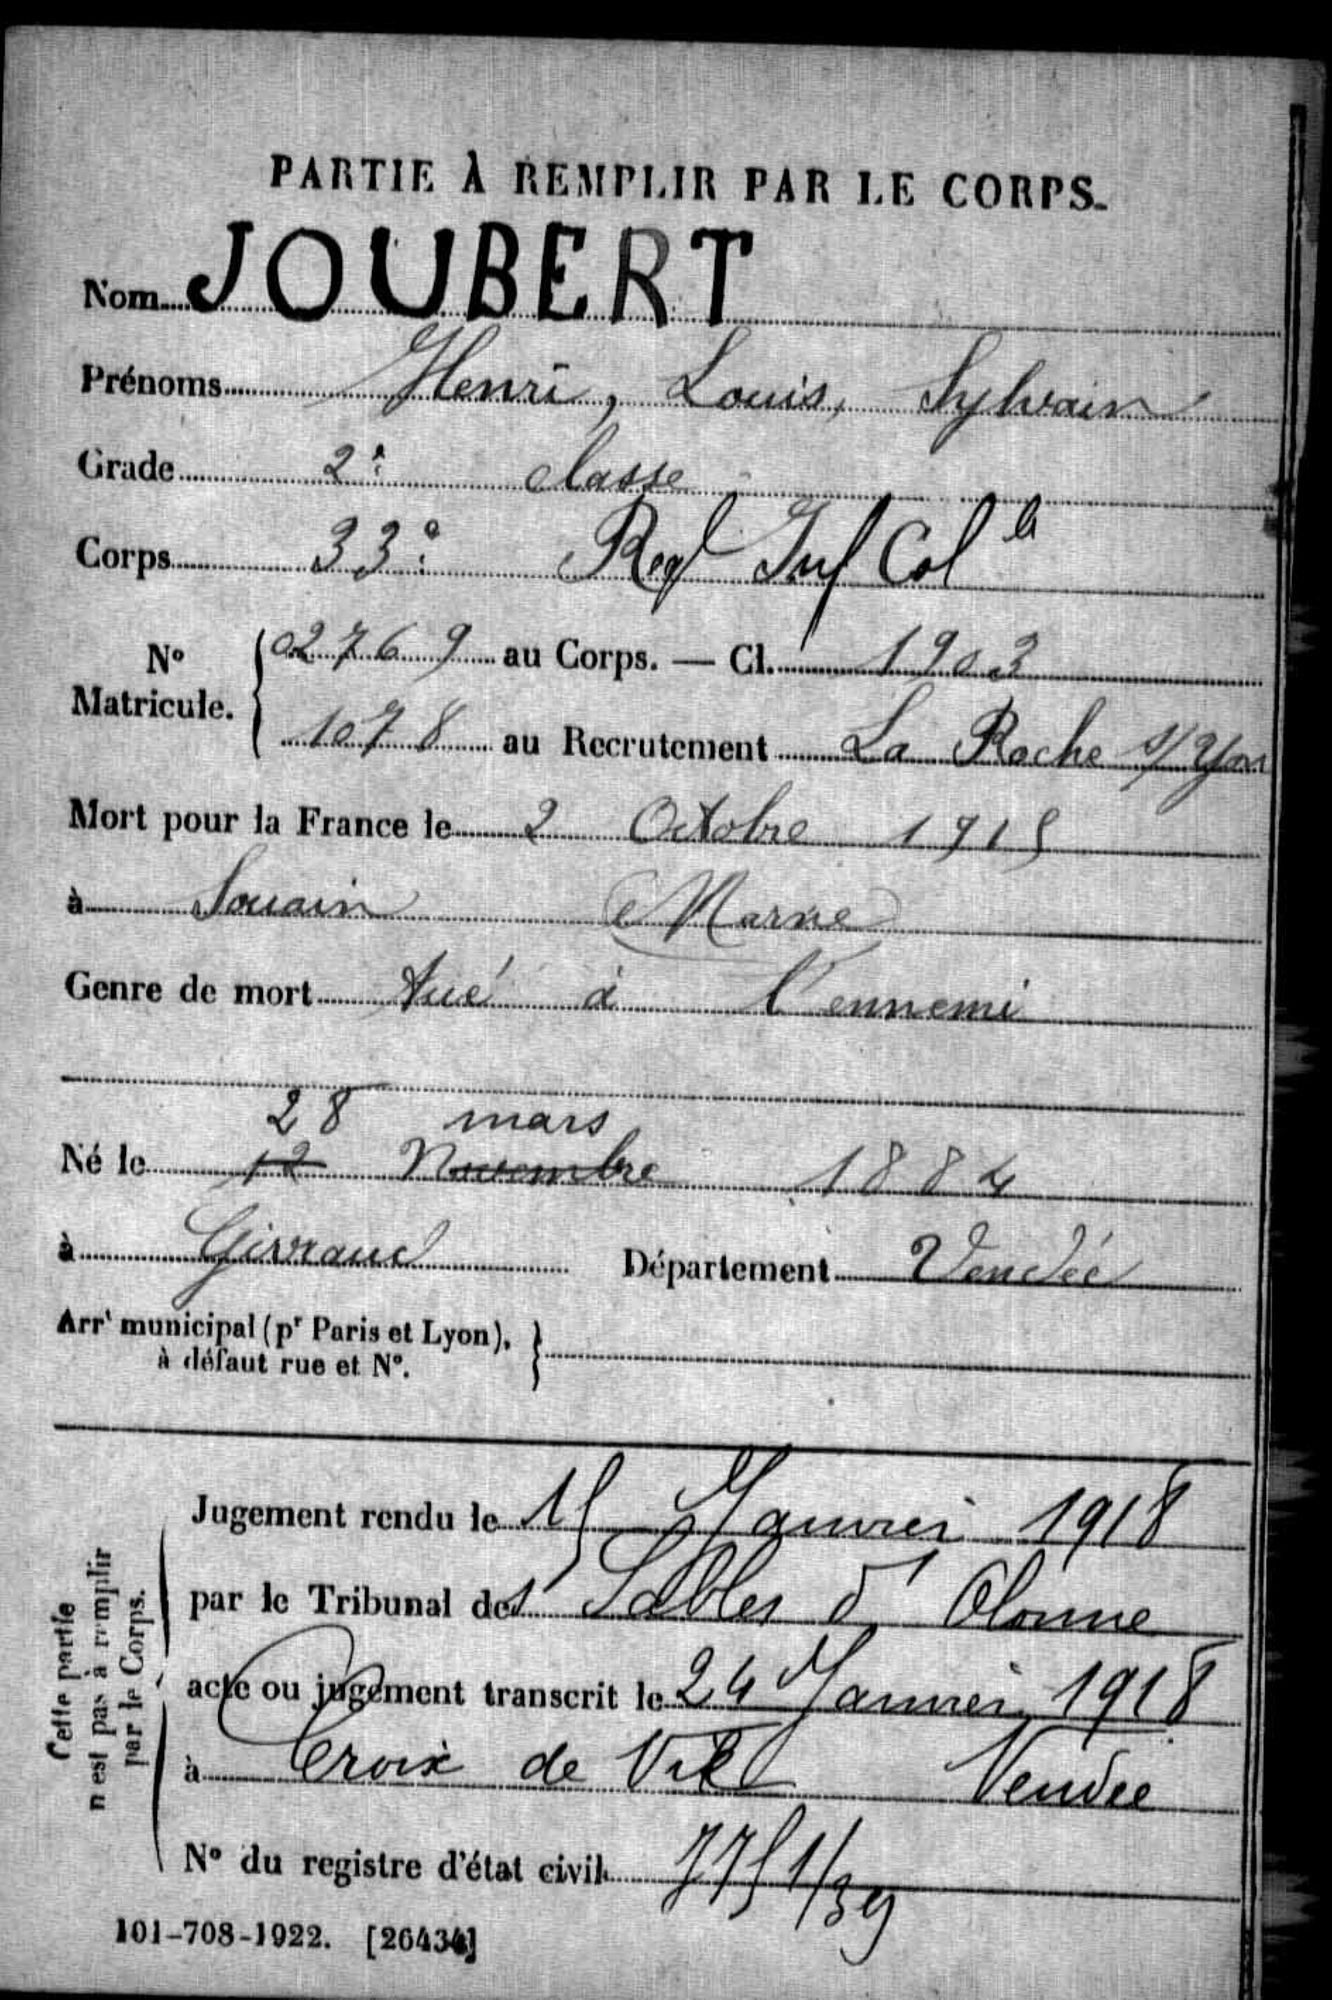 PARTIE À REMPLIR PAR LE CORPS.
Nom JOUBERT
Prénoms Henri, Louis, Sylvain
Grade 2e classe
Corps 33e Regt Inf Col le
No Matricule. { 02769 au Corps. — Cl. 1903
1078 au Recrutement La Roche s/Yon
Mort pour la France le 2 Octobre 1915
à Souain (Marne)
Genre de mort tué à l'ennemi
28 mars
Né le 12 Novembre 1884
à Givrand Département Vendée
Arrt municipal (pr Paris et Lyon), }
à défaut rue et No.
Cette partie
n'est pas à remplir
par le Corps.
Jugement rendu le 15 Janvier 1918
par le Tribunal des Sables d'Olonne
acte ou jugement transcrit le 24 Janvier 1918
à Croix de Vie Vendée
No du registre d'état civil 7751/39
101-708-1922. [26434]